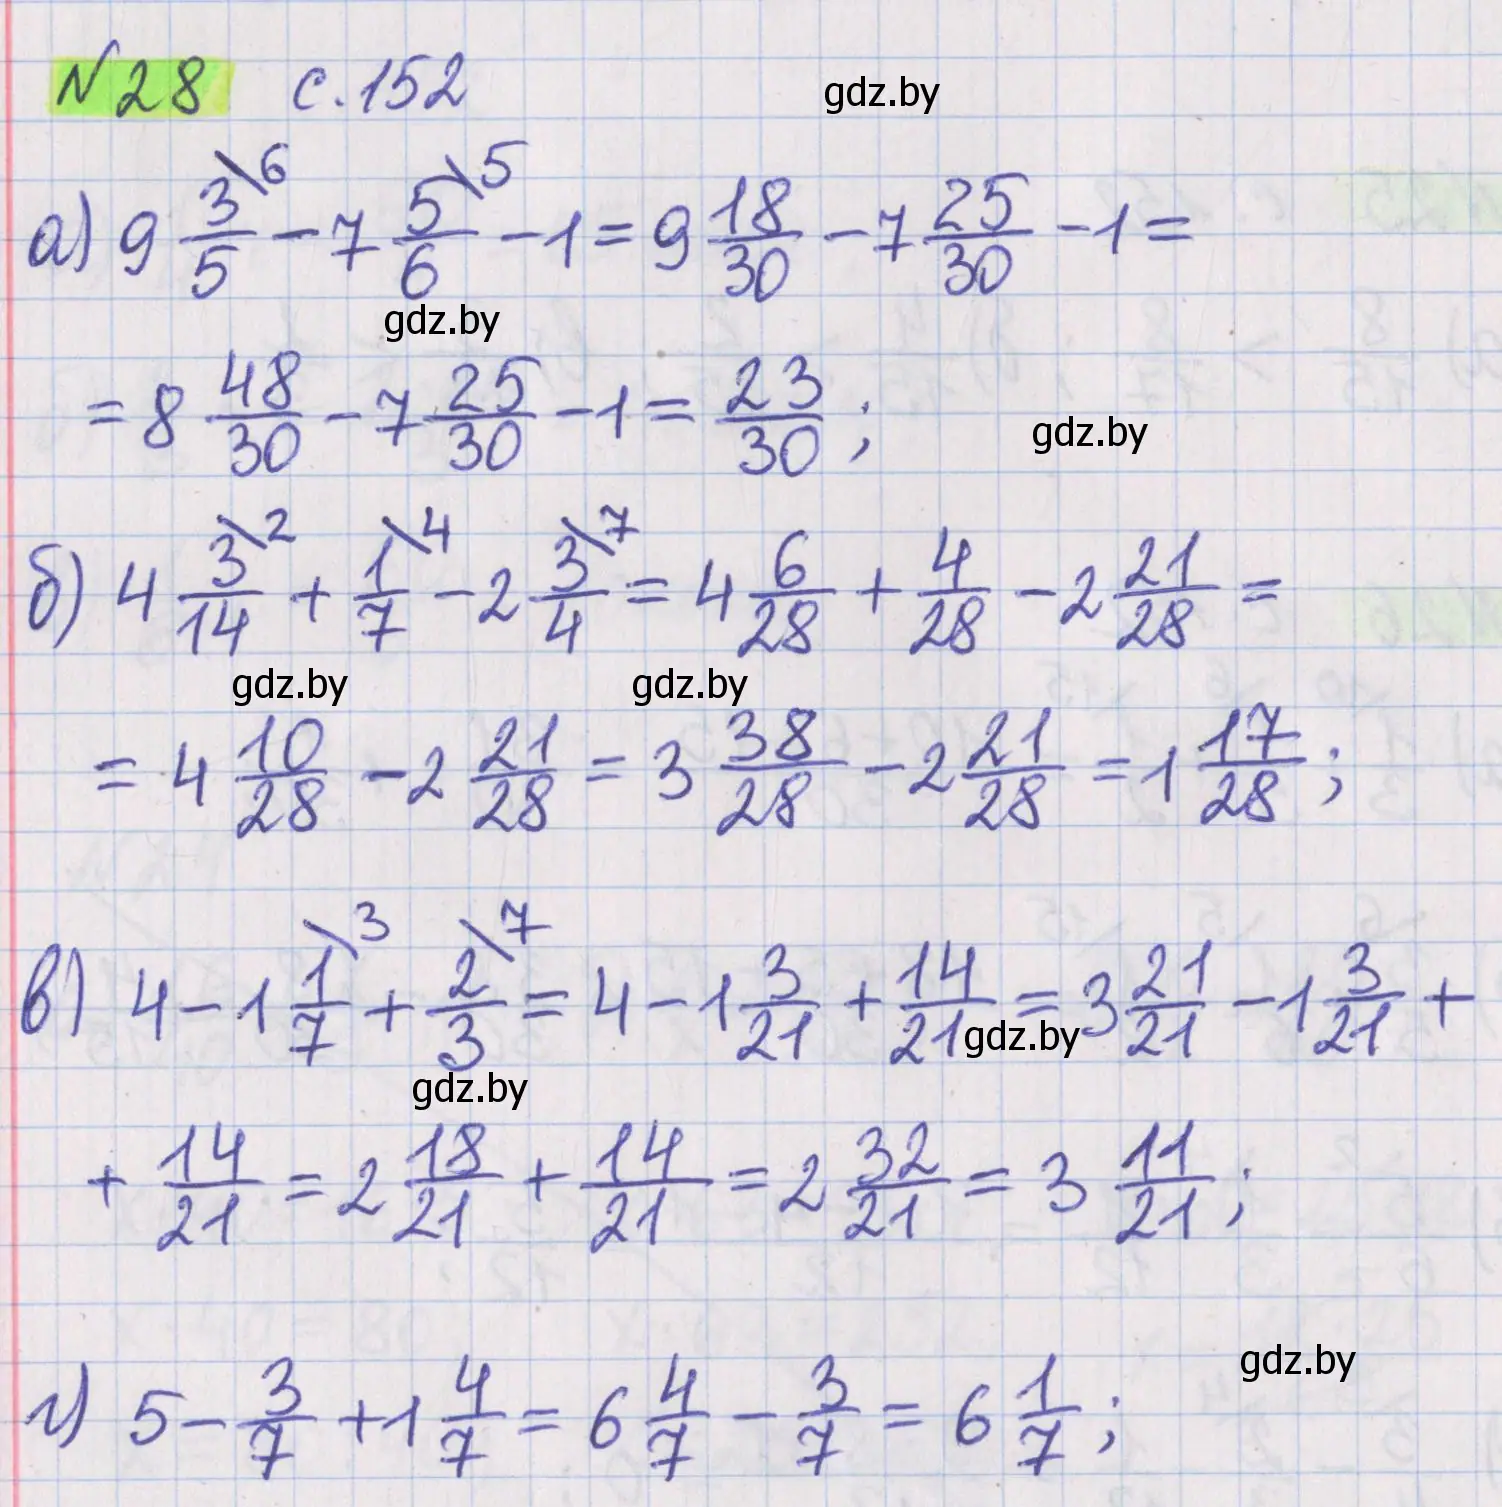 №28 с.152
gdz.by
а) 9 3/5 \6 − 7 5/6 \5 − 1 = 9 18/30 − 7 25/30 − 1 =
gdz.by
= 8 48/30 − 7 25/30 − 1 = 23/30 ;
gdz.by
б) 4 3/14 \2 + 1/7 \4 − 2 3/4 \7 = 4 6/28 + 4/28 − 2 21/28 =
gdz.by gdz.by
= 4 10/28 − 2 21/28 = 3 38/28 − 2 21/28 = 1 17/28 ;
в) 4 − 1 1/7 \3 + 2/3 \7 = 4 − 1 3/21 + 14/21 = 3 21/21 − 1 3/21 +
gdz.by
gdz.by
+ 14/21 = 2 18/21 + 14/21 = 2 32/21 = 3 11/21 ;
gdz.by
г) 5 − 3/7 + 1 4/7 = 6 4/7 − 3/7 = 6 1/7 ;